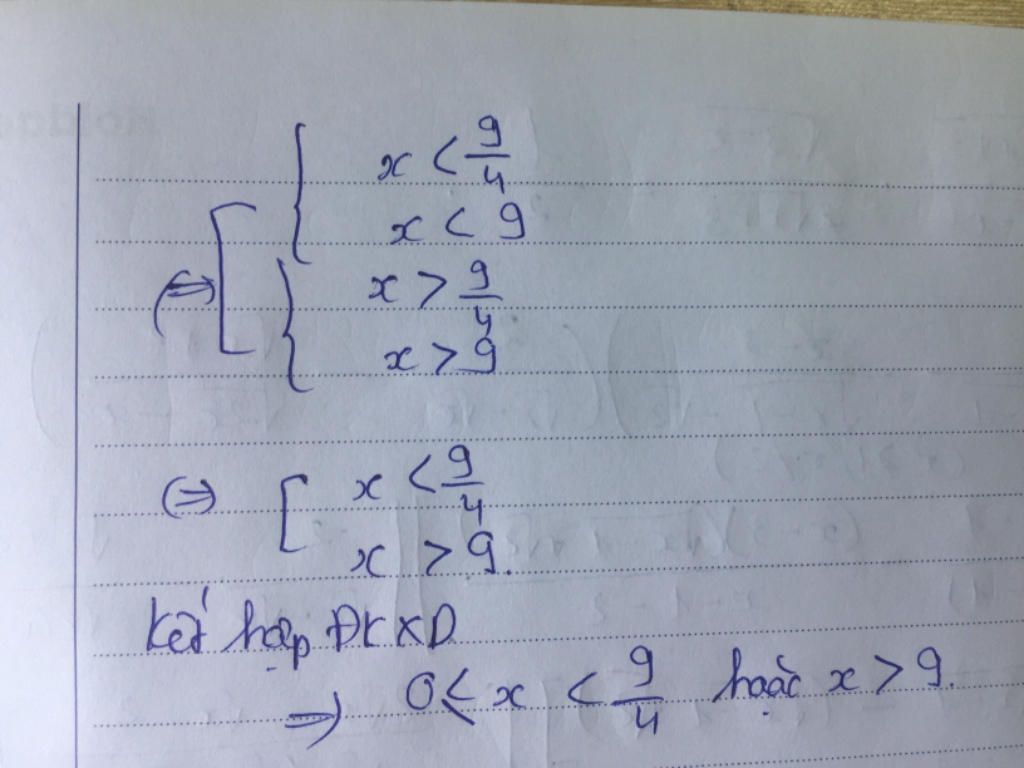 x < 9/4
x < 9
⇔
x > 9/4
x > 9
⇔ x < 9/4
x > 9.
Kết hợp ĐKXĐ
⇒ 0 ≤ x < 9/4 hoặc x > 9.